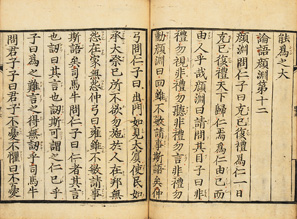 能爲之大
論語顔淵第十二
顔淵問仁子曰克己復禮爲仁一日
克己復禮天下歸仁焉爲仁由己而
由人乎哉顔淵曰請問其目子曰非
禮勿視非禮勿聽非禮勿言非禮勿
動顔淵曰回雖不敏請事斯語矣仲
弓問仁子曰出門如見大賓使民如
承大祭己所不欲勿施於人在邦無
怨在家無怨仲弓曰雍雖不敏請事
斯語矣司馬牛問仁子曰仁者其言
也訒曰其言也訒斯可謂之仁已乎
子曰爲之難言之得無訒乎司馬牛
問君子子曰君子不憂不懼曰不憂